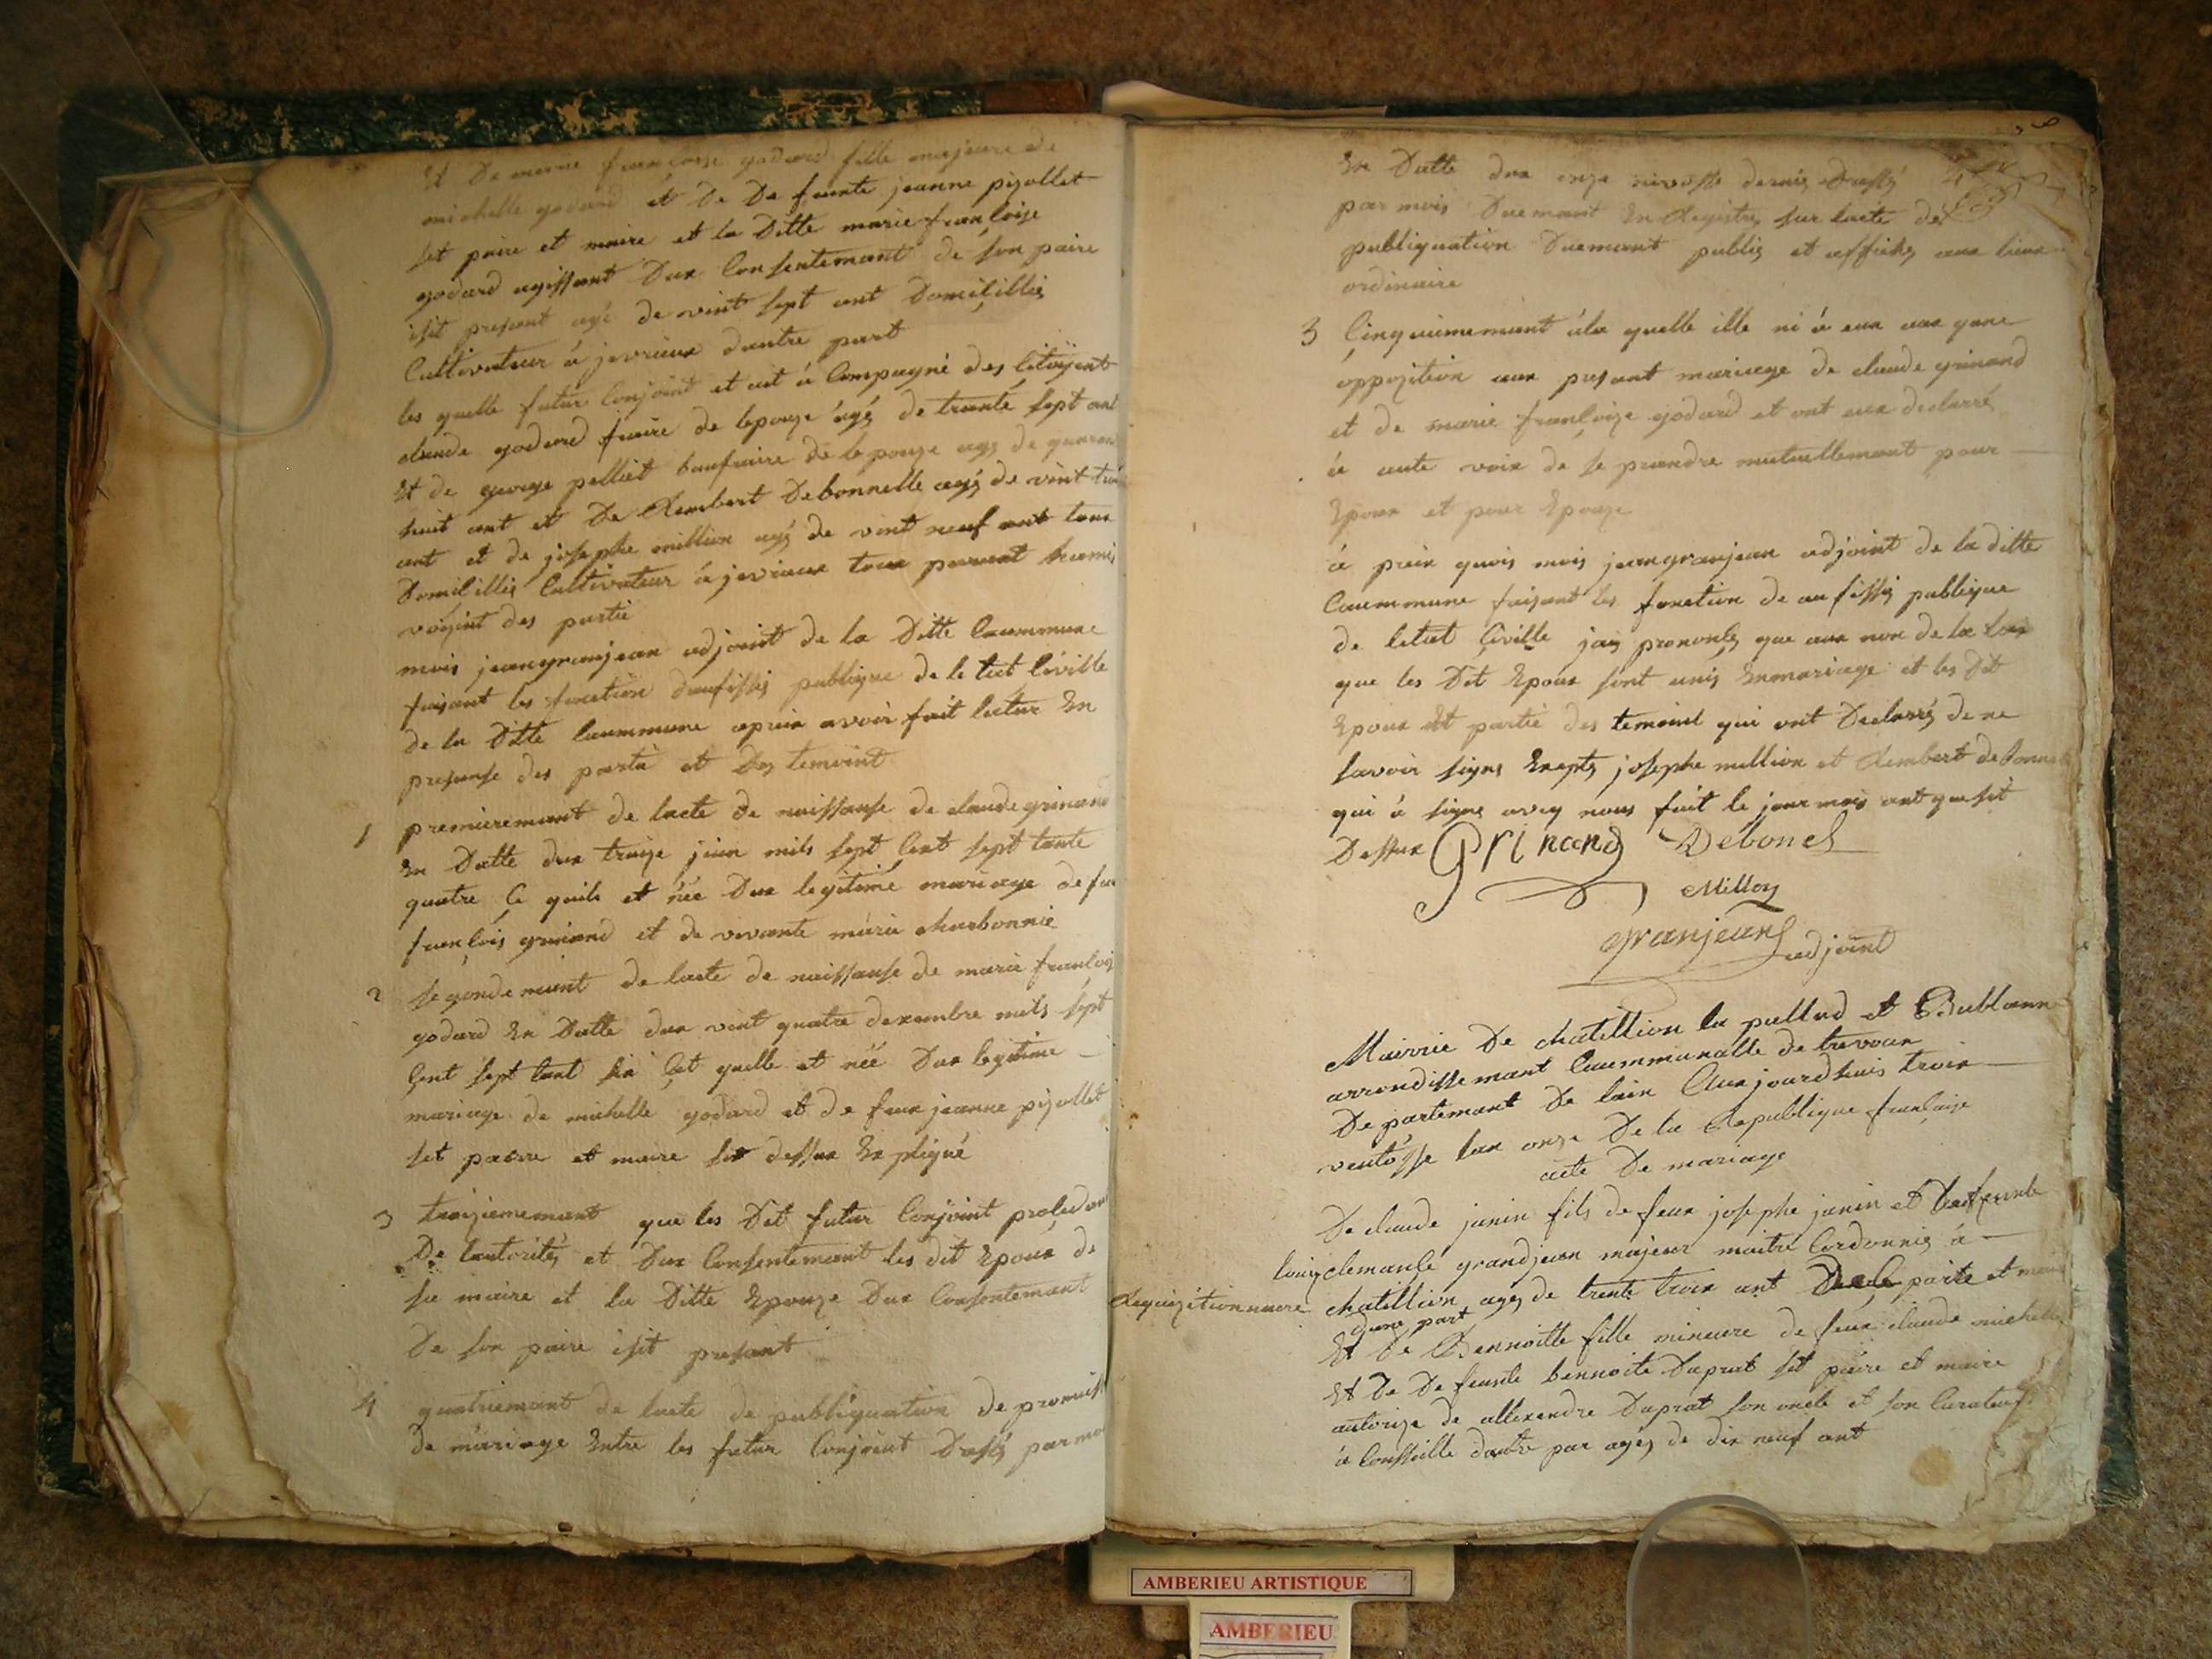 Et De marie françoise godard fille majeure de
michelle godard et De De funte jeanne pizollet
set paire et maire et la Ditte marie françoise
godard agissant Dux Consentemant de son paire
isit presant agé de vint sept ant Domiçilliés
Cultivateur à jevrieux dautre part
les quelle futur Conjoint et ait à Compagné des Citoÿent
claude godard fraire de lepouze âgé de trante sept ant
Et de george palliet baufraire de lepouze agé de
huit ant et De Rambert Debonnelle agé de vint
ant et de josephe million agé de vint neuf ant tous
Domiçilliés Cultivateur à jevrieux tous parant
voisint des partie
mois jeangranjean adjoint de la Ditte Caummune
faisant les fonction daufissiés publique de le tat Civille
de la Ditte Caummune apries avoir fait lectur En
presanse des partie et Des temoint
1 premieremant de lacte de naissanse de claude grinand
En Datte dux traize juin mils sept Cent sept tante
quatre Ce quils et née Dux legitime mariage de
françois grinand et de vivante marie charbonnié
2 segondemant de lacte de naissanse de marie
godard En Datte dux vint quatre dexambre mils sept
Çent sept tant six Çet quelle et née Dux legitime
mariage de michelle godard et de feux jeanne pizollet
set paire et maire sit dessux Expliqué
3 troiziememant que les Dit futur Conjoint
De lautorités et Dux Consentemant les dit Epoux de
sa maire et la Ditte Epouze Dux Consentemant
De son paire isit presant
4 quatriemant de lacte de publiquation de
De mariage Entre les futur Conjoint Dressés par
En Datte dux onze nivosse derniés Dressés
par mois Duemant En Registrés sur lacte de
publiquation Duemant publiés et affichés aux lieux
ordinaire
3 Çinquiememant à la quelle ille ni à eux aux qune
oppozition aux presant mariage de claude grinand
et de marie françoize godard et ont eux declarré
à aute voix de se prandre mutuellemant pour
Epoux et pour Epouze
à preix quois mois jeangranjean adjoint de la ditte
Caummune faisant les fonction de aufissiés publique
de letat Çiville jais prononsés que aux non de la lois
que les Dit Epoux sont unis Enmariage et les Dit
Epoux Et partie des temoint qui ont Declarrés de ne
savoir signe Exeptés josephe million et Rambert
qui à signe aveq nous fait le jour mois ant que sit
Dessux Grinand Debonel
Millon
granjean adjoint
Mairrie De chatillion la pallud et Bublanne
arrondissemant Caummunalle de trevoux
Departemant De lain Aux jourdhuis troix
ventôsse lan onze De la Republique françaize
acte De mariage
De claude janin fils de feux josephe janin et
louiz clemanse grandjean majeur maitre Cordonniés à
Requizitionnaire chatillion agés de trente troix ant paire et
dune part
Et De Bennoitte fille mineure de feux claude
Et De De funte bennoite Duprat set paire et maire
autorize de allexandre Duprat son oncle et son Curateur
à Conssaille dautre par agés de dix neuf ant
AMBERIEU ARTISTIQUE
AMBERIEU